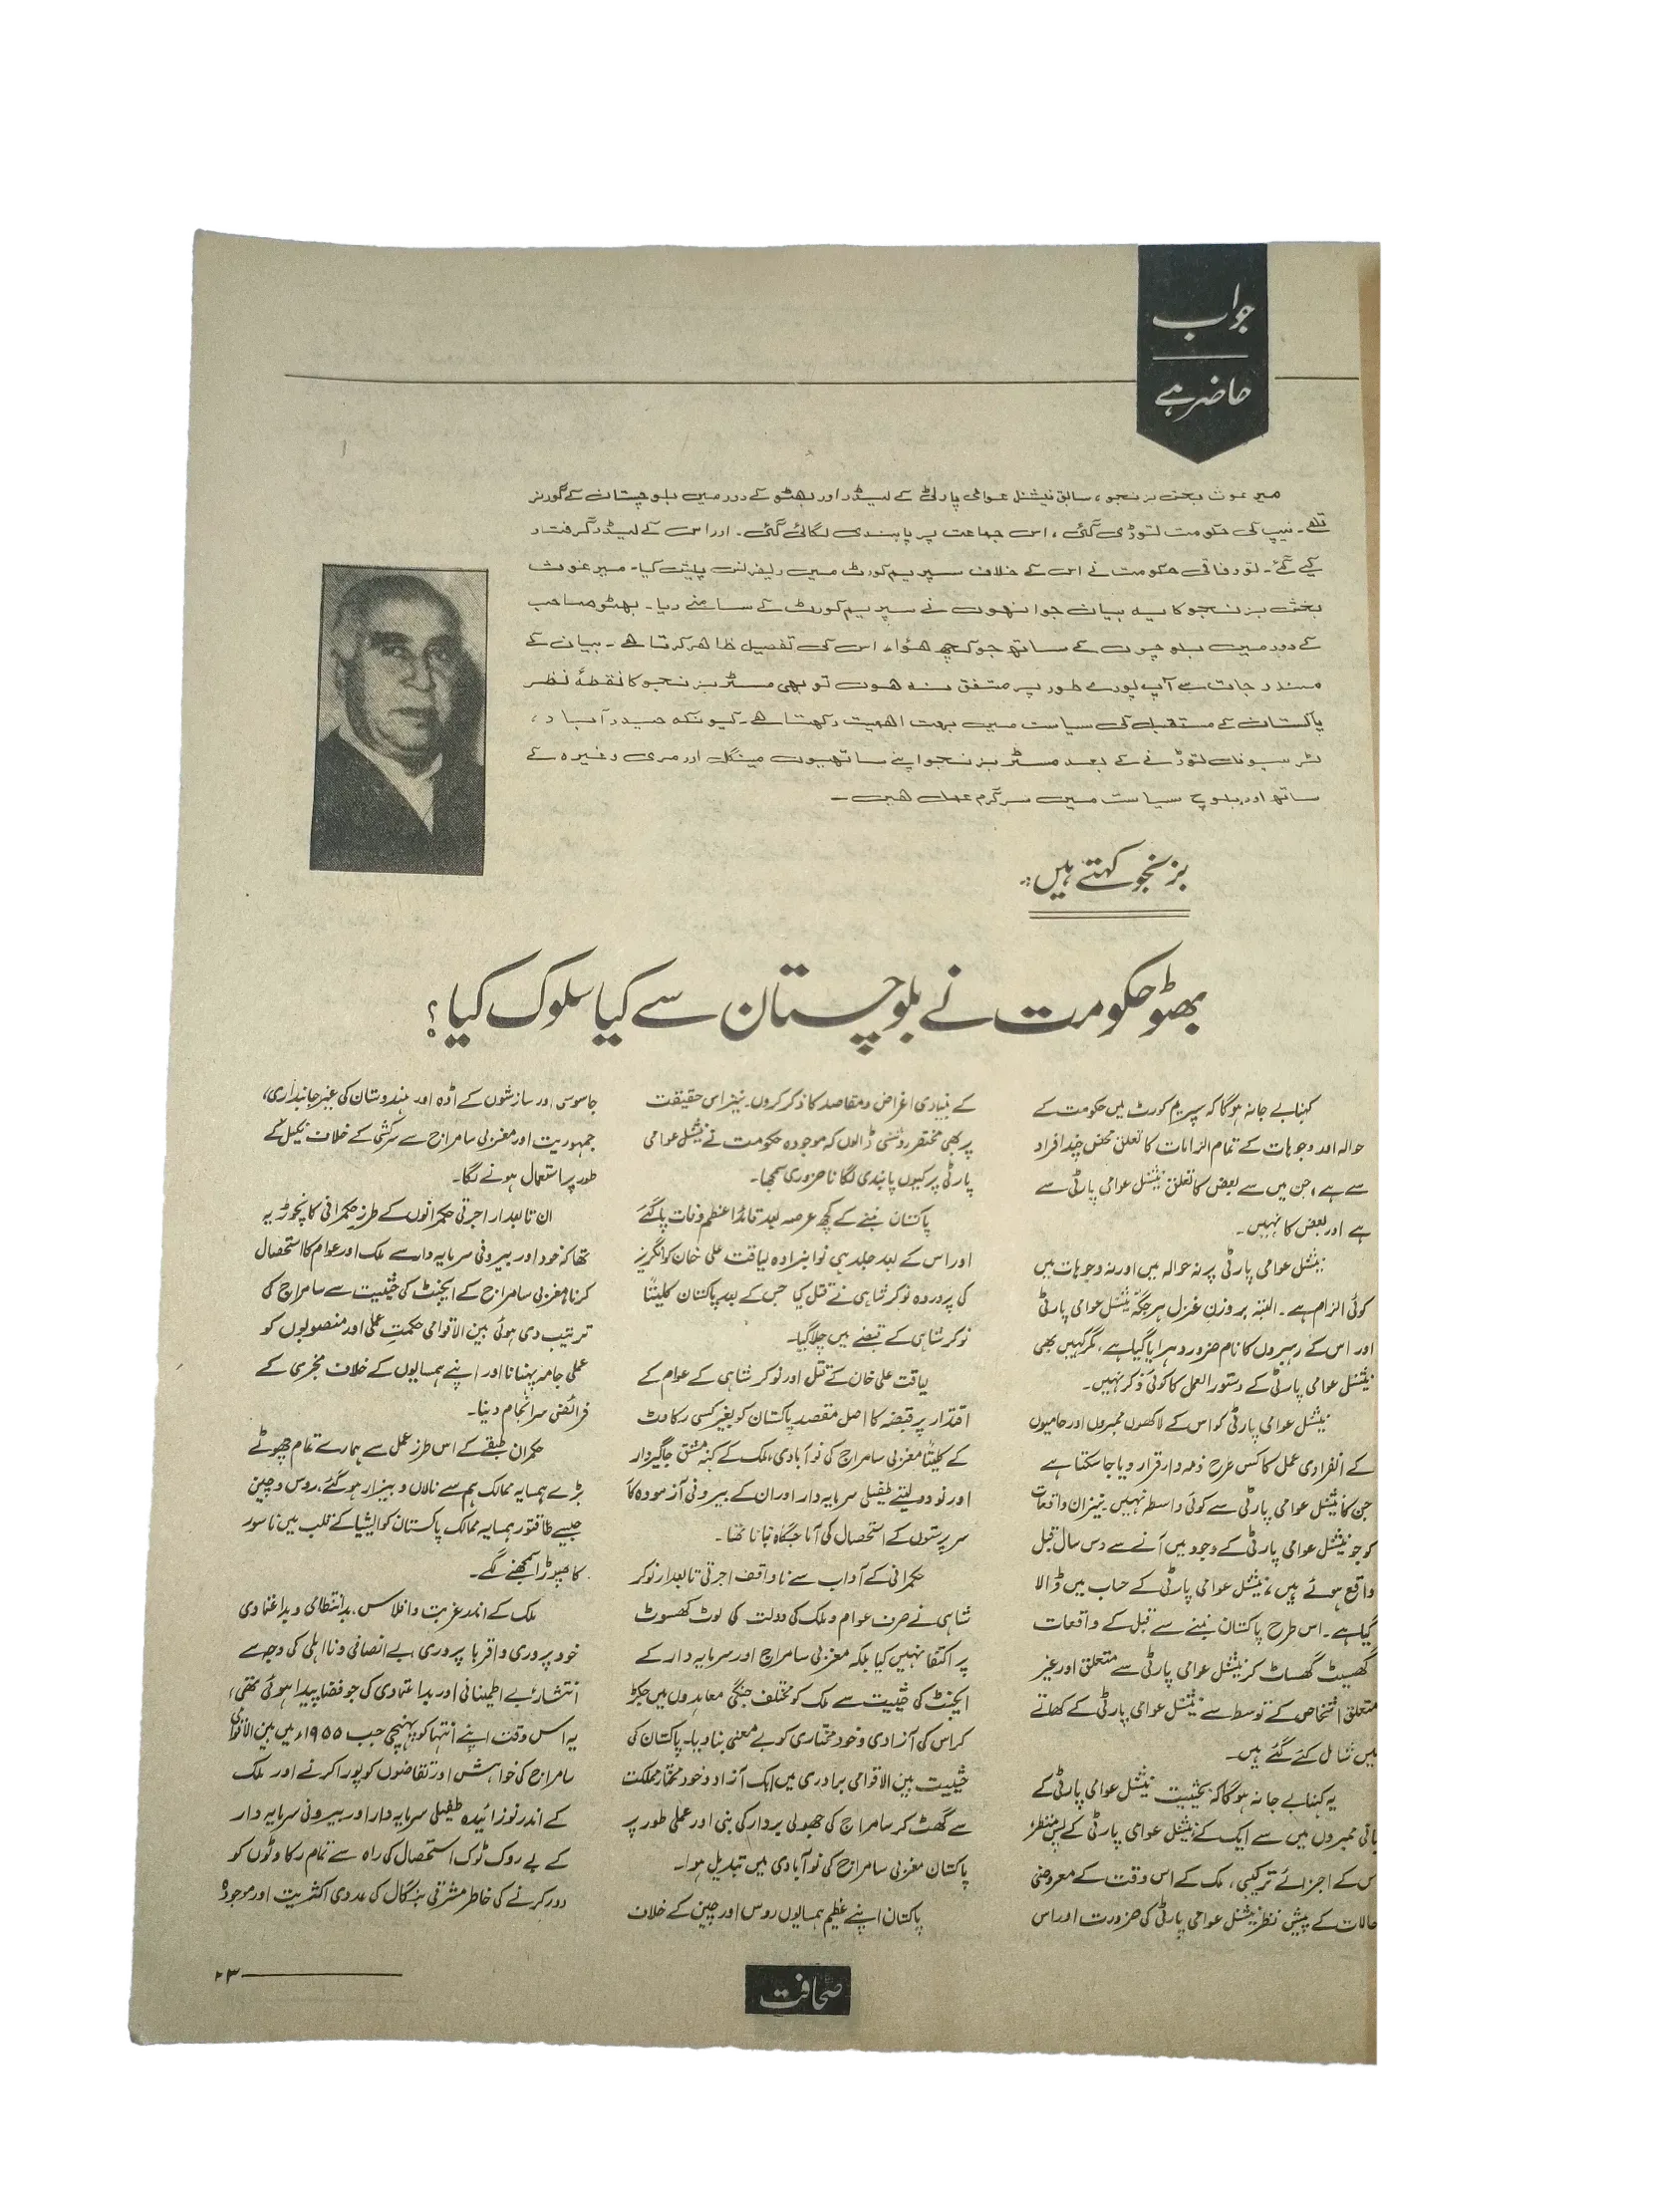 جواب
حاضر ہے
میر غوث بخش بزنجو، سابق نیشنل عوامی پارٹی کے لیڈر اور بھٹو کے دور میں بلوچستان کے گورنر
تھے۔ نیپ کی حکومت توڑی گئی، اس جماعت پر پابندی لگائی گئی۔ اور اس کے لیڈر گرفتار
کیے گئے۔ تو وفاقی حکومت نے اس کے خلاف سپریم کورٹ میں ریفرنس پیش کیا۔ میر غوث
بخش بزنجو کا یہ بیان جو انھوں نے سپریم کورٹ کے سامنے دیا۔ بھٹو صاحب
کے دور میں بلوچوں کے ساتھ جو کچھ ھؤا، اس کی تفصیل ظاھر کرتا ھے۔ بیان کے
مندرجات سے آپ پورے طور پر متفق نہ ھوں تو بھی مسٹر بزنجو کا نقطۂ نظر
پاکستان کے مستقبل کی سیاست میں بہت اھمیت رکھتا ھے۔ کیونکہ حیدر آباد،
ٹربیونل توڑنے کے بعد مسٹر بزنجو اپنے ساتھیوں مینگل اور مری وغیرہ کے
ساتھ اور بلوچ سیاست میں سرگرم عمل ھیں۔
بزنجو کہتے ہیں:
بھٹو حکومت نے بلوچستان سے کیا سلوک کیا؟
کہنا بے جا نہ ہوگا کہ سپریم کورٹ میں حکومت کے
حوالہ اور وجوہات کے تمام الزامات کا تعلق محض چند افراد
سے ہے، جن میں سے بعض کا تعلق نیشنل عوامی پارٹی سے
ہے اور بعض کا نہیں۔
نیشنل عوامی پارٹی پر نہ حوالہ میں اور نہ وجوہات میں
کوئی الزام ہے۔ البتہ بروزن غزل ہر جگہ نیشنل عوامی پارٹی
اور اس کے رہبروں کا نام ضرور دہرایا گیا ہے، مگر کہیں بھی
نیشنل عوامی پارٹی کے دستور العمل کا کوئی ذکر نہیں۔
نیشنل عوامی پارٹی کو اس کے لاکھوں ممبروں اور حامیوں
کے انفرادی عمل کا کس طرح ذمہ دار قرار دیا جا سکتا ہے
جن کا نیشنل عوامی پارٹی سے کوئی واسطہ نہیں۔ نیز ان واقعات
کو جو نیشنل عوامی پارٹی کے وجود میں آنے سے دس سال قبل
واقع ہوئے ہیں، نیشنل عوامی پارٹی کے حساب میں ڈالا
گیا ہے۔ اس طرح پاکستان بننے سے قبل کے واقعات
گھسیٹ گھساٹ کر نیشنل عوامی پارٹی سے متعلق اور غیر
متعلق اشخاص کے توسط سے نیشنل عوامی پارٹی کے کھاتے
میں شامل کئے گئے ہیں۔
یہ کہنا بے جا نہ ہوگا کہ بحیثیت نیشنل عوامی پارٹی کے
بانی ممبروں میں سے ایک کے نیشنل عوامی پارٹی کے پس منظر،
اس کے اجزائے ترکیبی، ملک کے اس وقت کے معروضی
حالات کے پیش نظر نیشنل عوامی پارٹی کی ضرورت اور اس
کے بنیادی اغراض و مقاصد کا ذکر کروں۔ نیز اس حقیقت
پر بھی مختصر روشنی ڈالوں کہ موجودہ حکومت نے نیشنل عوامی
پارٹی پر کیوں پابندی لگانا ضروری سمجھا۔
پاکستان بننے کے کچھ عرصہ بعد قائداعظم وفات پا گئے
اور اس کے بعد جلد ہی نوابزادہ لیاقت علی خان کو انگریز
کی پروردہ نوکر شاہی نے قتل کیا جس کے بعد پاکستان کلیتاً
نوکر شاہی کے قبضے میں چلا گیا۔
لیاقت علی خان کے قتل اور نوکر شاہی کے عوام کے
اقتدار پر قبضہ کا اصل مقصد پاکستان کو بغیر کسی رکاوٹ
کے کلیتاً مغربی سامراج کی نو آبادی، ملک کے کہنہ مشق جاگیردار
اور نو دولتئے طفیلی سرمایہ دار اور ان کے بیرونی آزمودہ کار
سرپرستوں کے استحصال کی آماجگاہ بنانا تھا۔
حکمرانی کے آداب سے ناواقف اجرتی تابعدار نوکر
شاہی نے صرف عوام و ملک کی دولت کی لوٹ کھسوٹ
پر اکتفا نہیں کیا بلکہ مغربی سامراج اور سرمایہ دار کے
ایجنٹ کی حیثیت سے ملک کو مختلف جنگی معاہدوں میں جکڑ
کر اس کی آزادی و خود مختاری کو بے معنی بنا دیا۔ پاکستان کی
حیثیت بین الاقوامی برادری میں ایک آزاد و خود مختار مملکت
سے گھٹ کر سامراج کی جھولی بردار کی بنی اور عملی طور پر
پاکستان مغربی سامراج کی نو آبادی میں تبدیل ہوا۔
پاکستان اپنے عظیم ہمسایوں روس اور چین کے خلاف
جاسوسی اور سازشوں کے اڈہ اور ہندوستان کی غیر جانبداری،
جمہوریت اور مغربی سامراج سے سرکشی کے خلاف نکیل کے
طور پر استعمال ہونے لگا۔
ان تابعدار اجرتی حکمرانوں کے طرز حکمرانی کا نچوڑ یہ
تھا کہ خود اور بیرونی سرمایہ دار سے ملک اور عوام کا استحصال
کرنا، مغربی سامراج کے ایجنٹ کی حیثیت سے سامراج کی
ترتیب دی ہوئی بین الاقوامی حکمت عملی اور منصوبوں کو
عملی جامہ پہنانا اور اپنے ہمسایوں کے خلاف مخبری کے
فرائض سرانجام دینا۔
حکمران طبقے کے اس طرز عمل سے ہمارے تمام چھوٹے
بڑے ہمسایہ ممالک ہم سے نالاں و بیزار ہو گئے، روس و چین
جیسے طاقتور ہمسایہ ممالک پاکستان کو ایشیا کے قلب میں ناسور
کا پھوڑا سمجھنے لگے۔
ملک کے اندر غربت و افلاس، بد انتظامی و بد اعتمادی
خود پروری و اقربا پروری، بے انصافی و نااہلی کی وجہ سے
انتشار، بے اطمینانی اور بد اعتمادی کی جو فضا پیدا ہوئی تھی،
یہ اس وقت اپنے انتہا کو پہنچی جب ۱۹۵۵ء میں بین الاقوامی
سامراج کی خواہش اور تقاضوں کو پورا کرنے اور ملک
کے اندر نوزائیدہ طفیلی سرمایہ دار اور بیرونی سرمایہ دار
کے بے روک ٹوک استحصال کی راہ سے تمام رکاوٹوں کو
دور کرنے کی خاطر مشرقی بنگال کی عددی اکثریت اور موجودہ
صحافت
۲۳